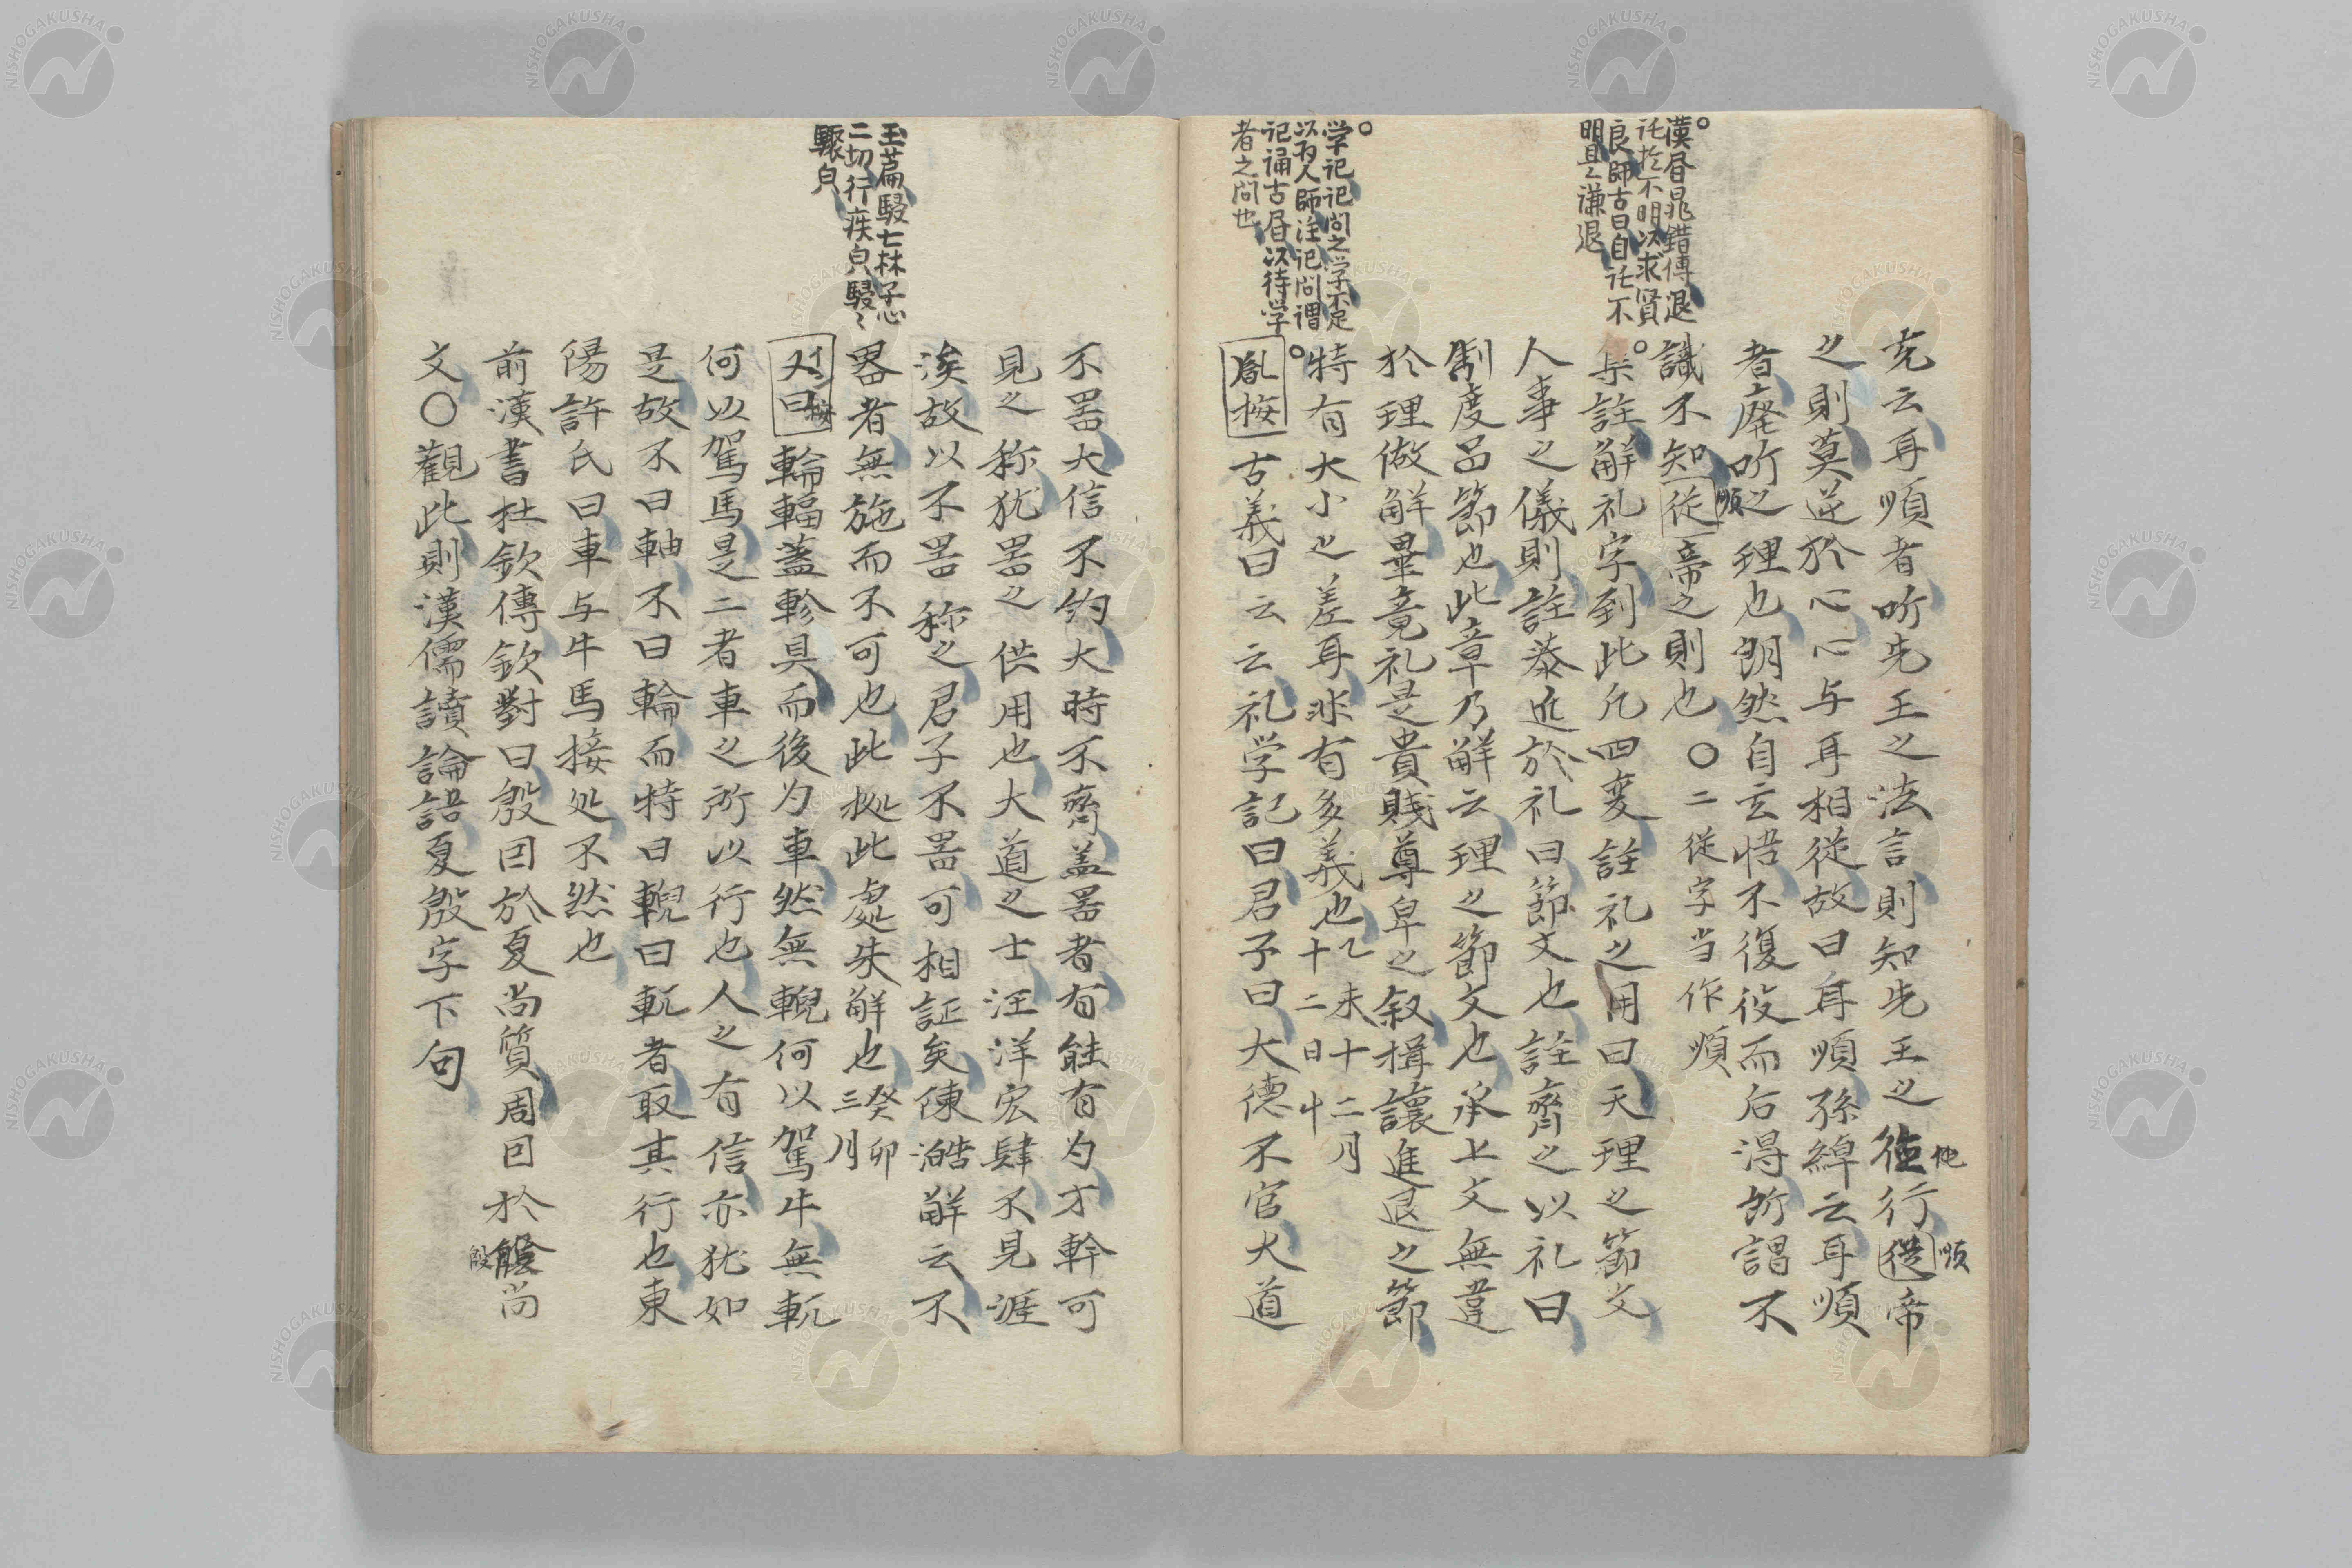 漢昼晁錯傳退
托於不明以求賢
良師古曰自托不
明且〻謙退
学記記問之学不足
以為人師注記問謂
記誦古昼以待学
者之問也
充云耳順者听先王之法言則知先王之德行從帝
他
順
之則莫逆於心心与耳相從故曰耳順孫綽云耳順
者廃听之理也朗然自玄悟不復役而后得所謂不
識不知從帝之則也〇二從字当作順
順
朱註解礼字到此凡四変註礼之用曰天理之節文
人事之儀則註恭近於礼曰節文也註齊之以礼曰
制度品節也此章乃解云理之節文也承上文無違
於理做解畢竟礼是貴賤尊卑之叙揖讓進退之節
特有大小之差耳非有多義也乙未十二月
十二日
胤按古義曰云云云礼学記曰君子曰大德不官大道
玉篇駸七林子心
二切行疾皃駸〻
驟皃
不噐大信不約大時不齊盖噐者有能有为才幹可
見之称犹噐之供用也大道之士汪洋宏肆不見涯
涘故以不噐称之君子不噐可相証矣陳澔解云不
噐者無施而不可也此拠此處朱解也癸卯
三月
又曰輪輻蓋軫具而後为車然無輗何以駕牛無軏
按
何以駕馬是二者車之所以行也人之有信亦犹如
是故不曰軸不曰輪而特曰輗曰軏者取其行也東
陽許氏曰車与牛馬接処不然也
前漢書杜欽傳欽對曰殷因於夏尚質周因於殷尚
殷
文〇觀此則漢儒讀論語夏殷字下句